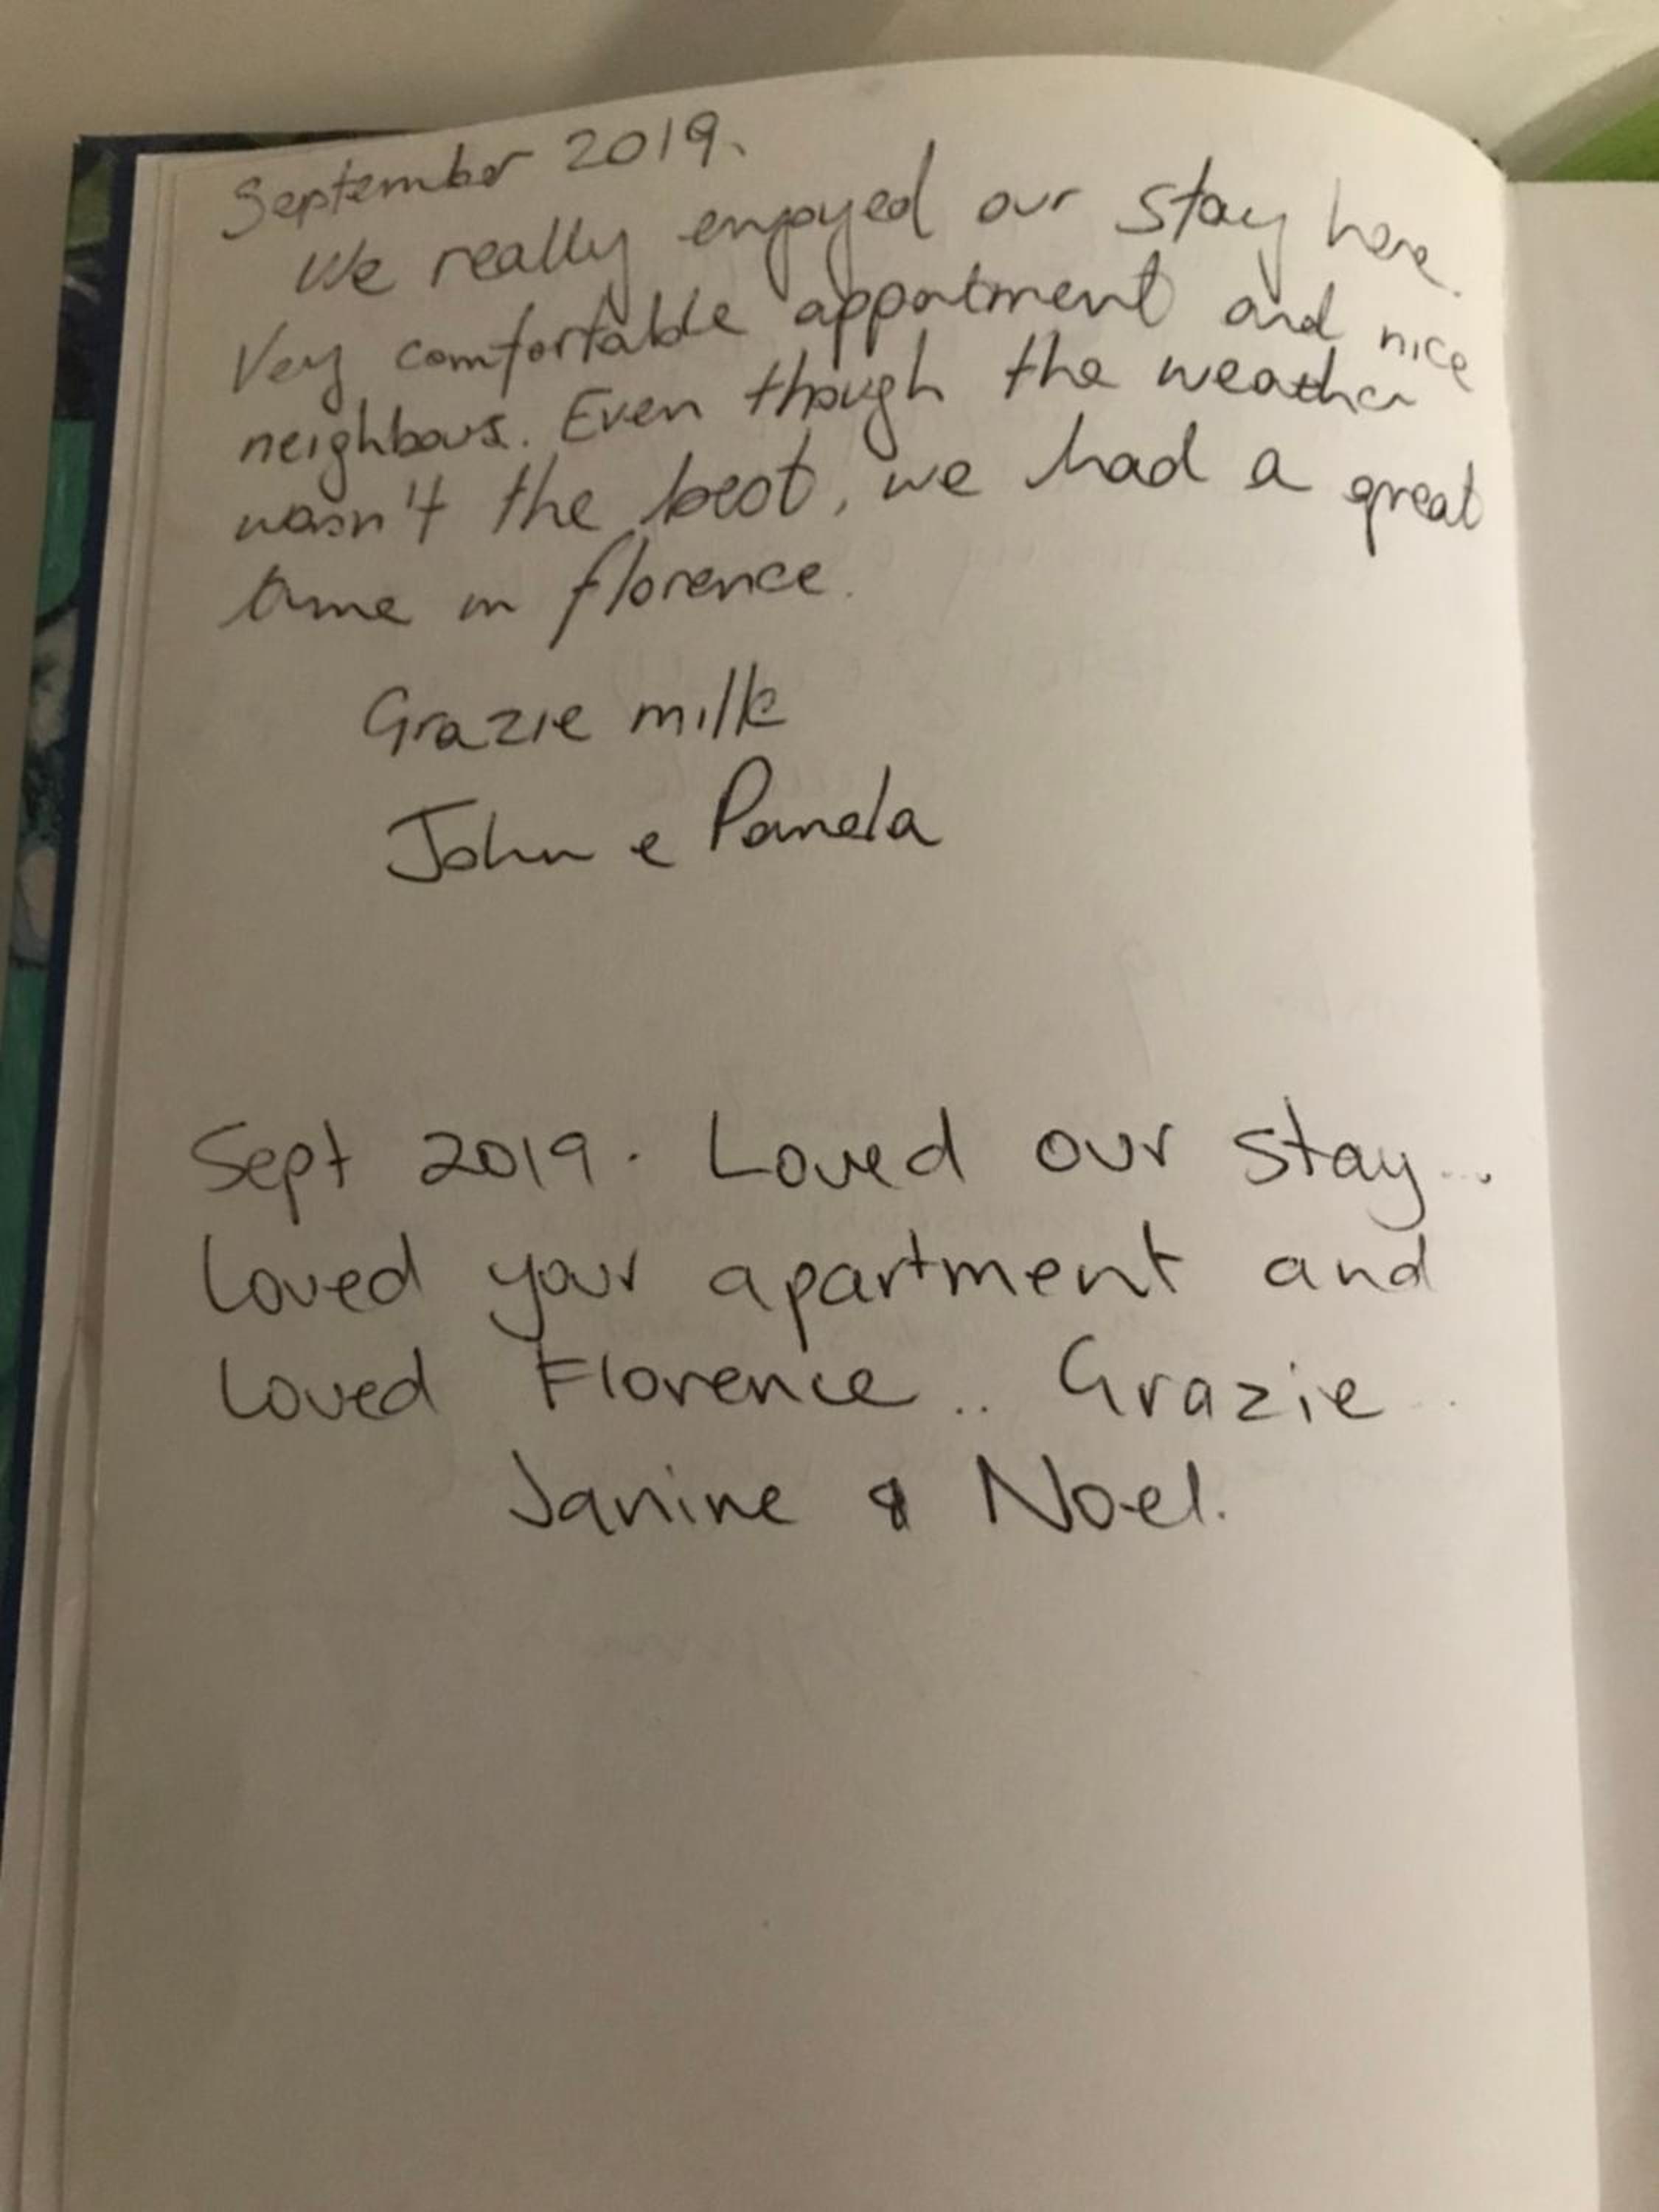 September 2019.
We really enjoyed our stay here.
Very comfortable appartment and nice
neighbours. Even though the weather
wasn't the best, we had a great
time in florence.
Grazie mille
John e Pamela
Sept 2019. Loved our stay...
Loved your apartment and
Loved Florence.. Grazie..
Janine & Noel.